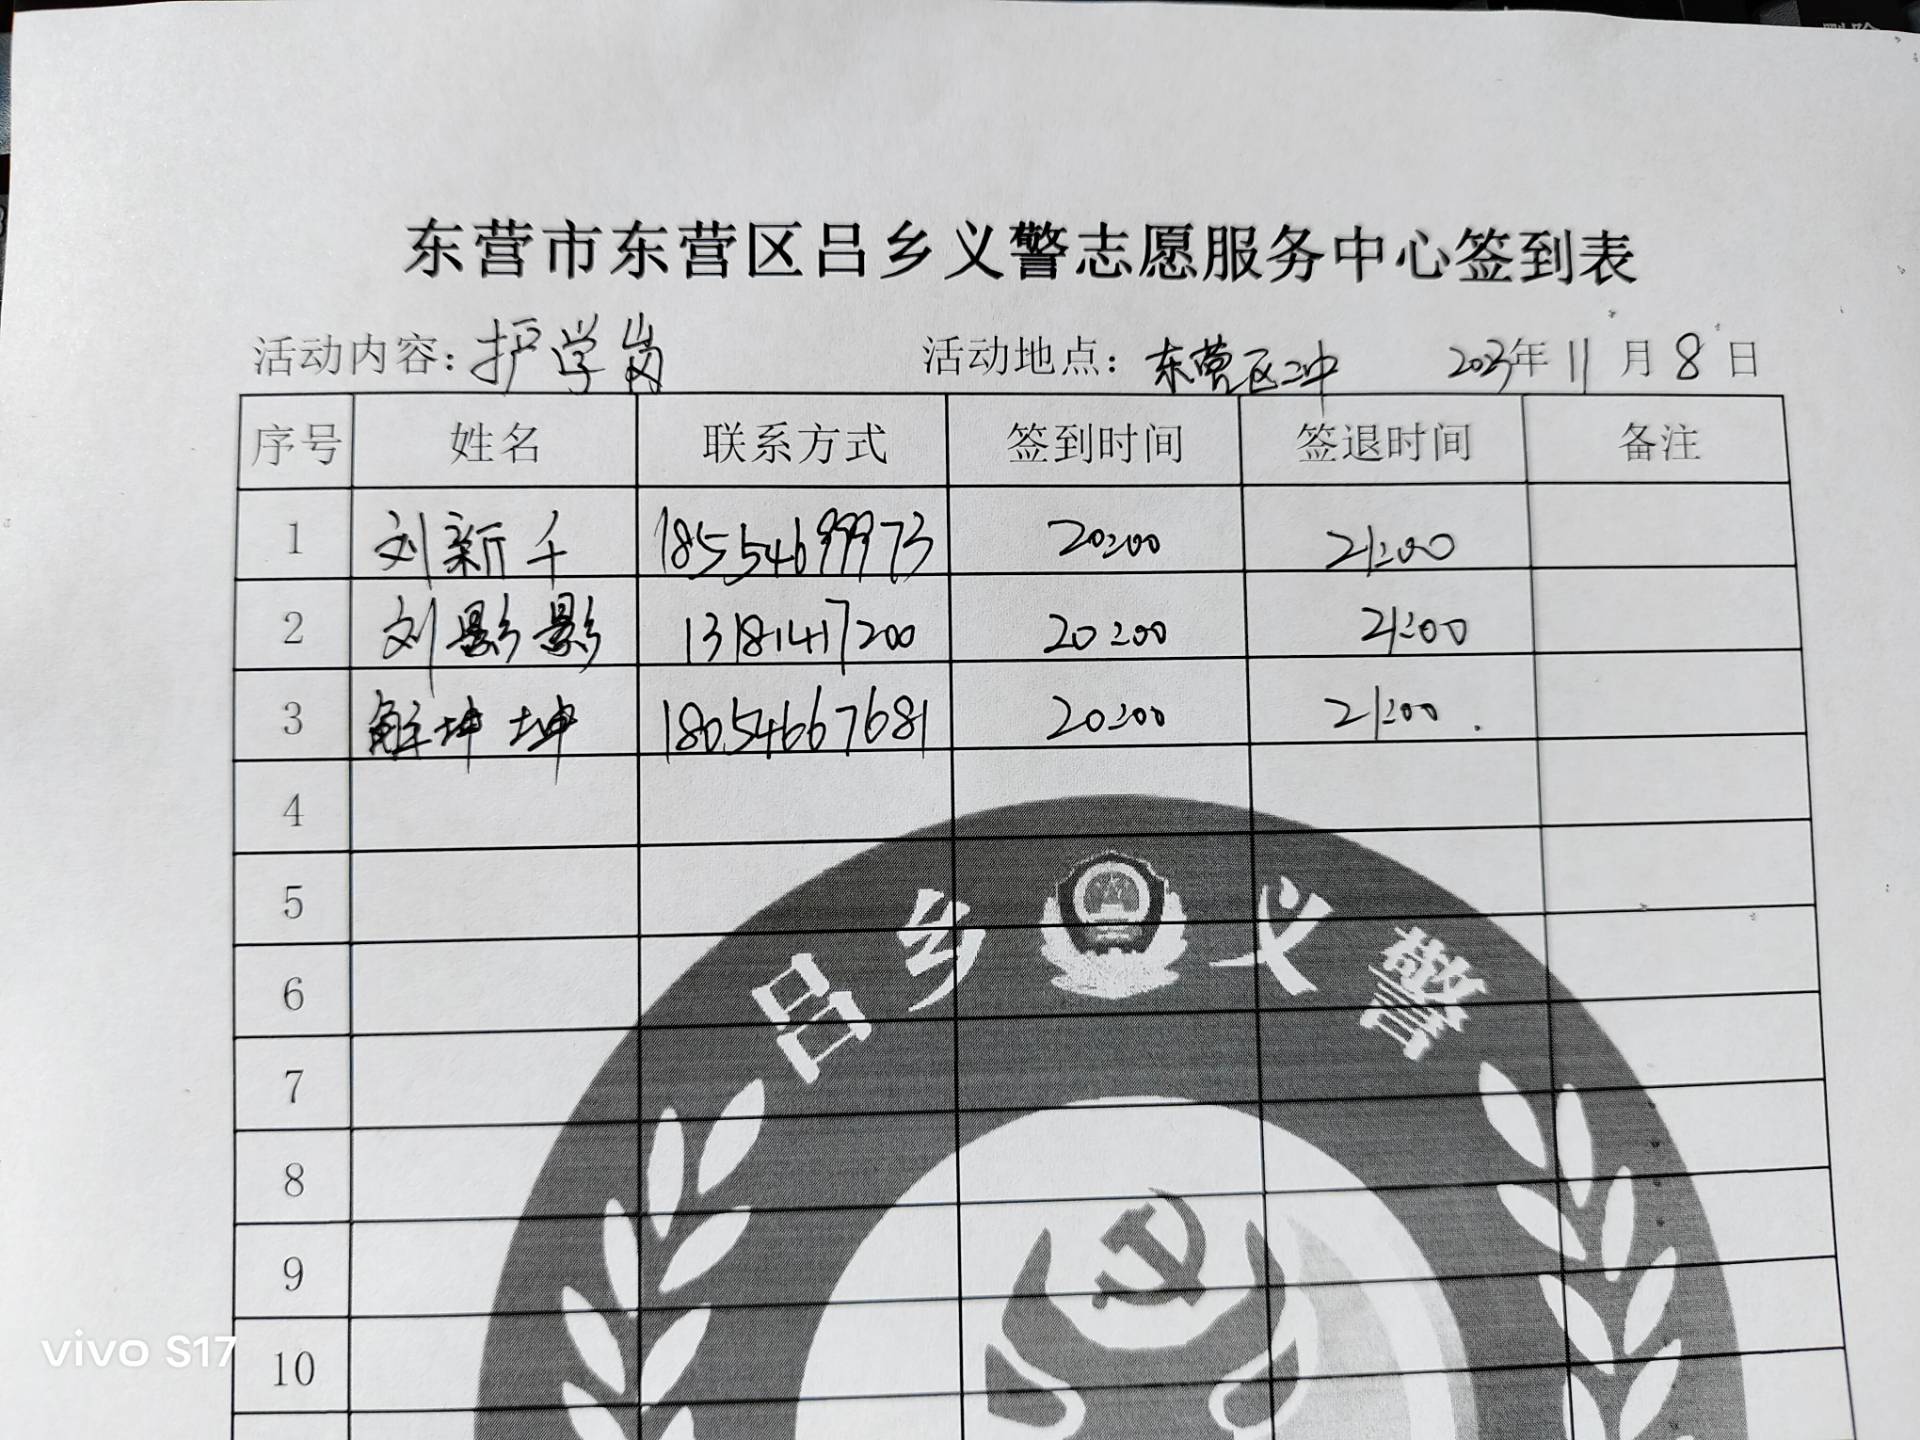 东营市东营区吕乡义警志愿服务中心签到表
活动内容：护学岗 活动地点：东营区二中 2023年11月8日
序号 姓名 联系方式 签到时间 签退时间 备注
1 刘新千 18554699973 20:00 21:00
2 刘影影 13181417200 20:00 21:00
3 解坤坤 18054667681 20:00 21:00
4
5
吕乡义警
6
7
8
9
10
vivo S17